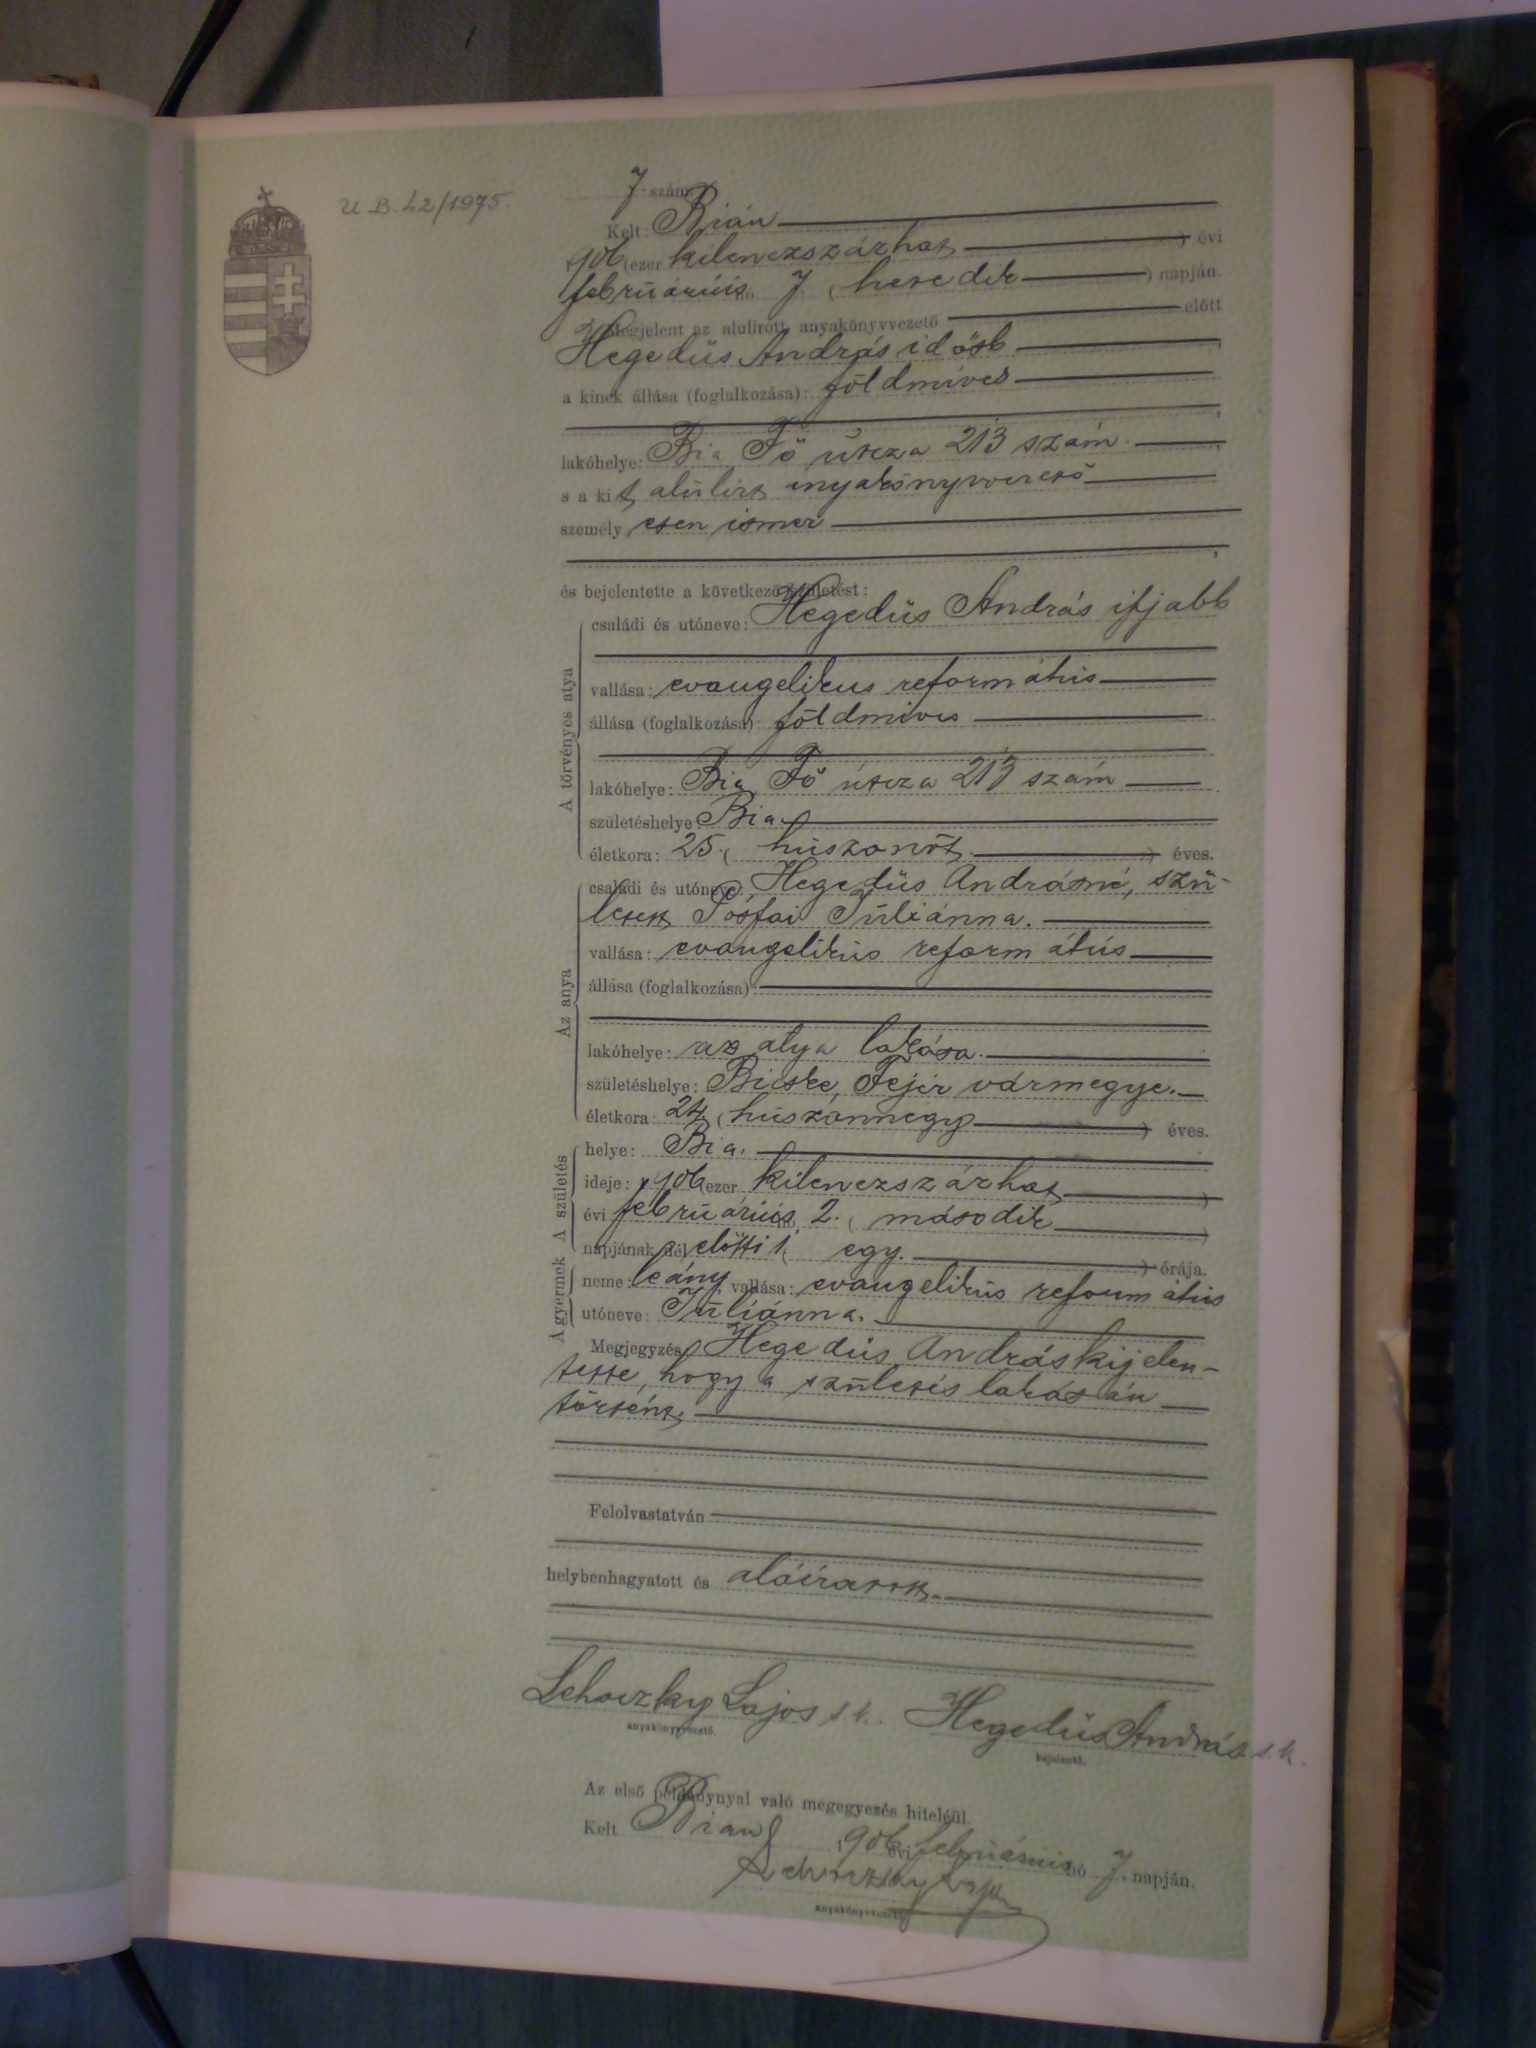 U B. 42/1975.
7. szám
Kelt: Bián
1906 (ezer kilenczszázhat) évi
februárius hó 7. (hetedik) napján.
Megjelent az alulirott anyakönyvvezető előtt
Hegedüs András idősb
a kinek állása (foglalkozása): földmives
lakóhelye: Bia Fő útcza 213 szám.
s a kit alulirt anyakönyvvezető
személyesen ismer
és bejelentette a következő születést:
A törvényes atya
családi és utóneve: Hegedüs András ifjabb
vallása: evangelikus református
állása (foglalkozása): földmives
lakóhelye: Bia Fő útcza 213 szám
születéshelye: Bia.
életkora: 25. (húszonöt.) éves.
Az anya
családi és utóneve: Hegedüs Andrásné, szü-
letett Pósfai Juliánna.
vallása: evangelikus református
állása (foglalkozása):
lakóhelye: az atya lakása.
születéshelye: Bicske, Fejér vármegye.
életkora: 24 (húszonnégy) éves.
A születés
helye: Bia.
ideje: 1906 (ezer kilenczszázhat)
évi februárius hó 2. (második)
napjának dél előtti 1 (egy.) órája.
A gyermek
neme: leány, vallása: evangelikus református
utóneve: Juliánna.
Megjegyzés: Hegedüs András kijelen-
tette, hogy a születés lakásán
történt.
Felolvastatván
helybenhagyatott és aláíratott.
Lehoczky Lajos s.k. Hegedüs András s.k.
anyakönyvvezető. bejelentő.
Az első példánynyal való megegyezés hiteléül.
Kelt Bian 1906 évi februárius hó 7. napján.
Lehoczky Lajos
anyakönyvvezető.